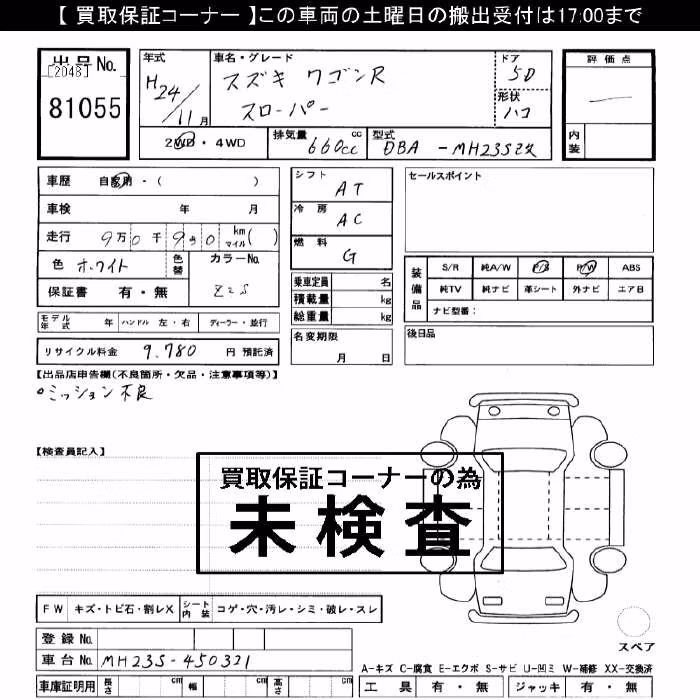 【 買取保証コーナー 】この車両の土曜日の搬出受付は17:00まで
出品No.
[2048]
81055
年式
H24/11月
車名・グレード
スズキ ワゴンR
スローパー
ドア
5D
形状
ハコ
評価点
内装
2WD・4WD
排気量 660cc cc
型式 DBA-MH23S改
車歴 自家用・( )
車検 年 月
走行 9万0千9百0 km マイル ( )
色 ホワイト
色替
カラーNo.
Z2S
保証書 有・無
シフト AT
冷房 AC
燃料 G
乗車定員 名
積載量 kg
総重量 kg
名変期限
月 日
セールスポイント
装備品
S/R 純A/W P/S P/W ABS
純TV 純ナビ 革シート 外ナビ エアB
ナビ型番:
後日品
モデル年式 年 ハンドル 左・右 ディーラー・並行
リサイクル料金 9,780 円 預託済
【出品店申告欄(不良箇所・欠品・注意事項等)】
○ミッション不良
【検査員記入】
買取保証コーナーの為
未検査
FW キズ・トビ石・割レX シート内装 コゲ・穴・汚レ・シミ・破レ・スレ
登録No.
車台No. MH23S-450321
車庫証明用 長さ cm 幅 cm 高さ cm
スペア
A-キズ C-腐食 E-エクボ S-サビ U-凹ミ W-補修 XX-交換済
工具 有・無 ジャッキ 有・無